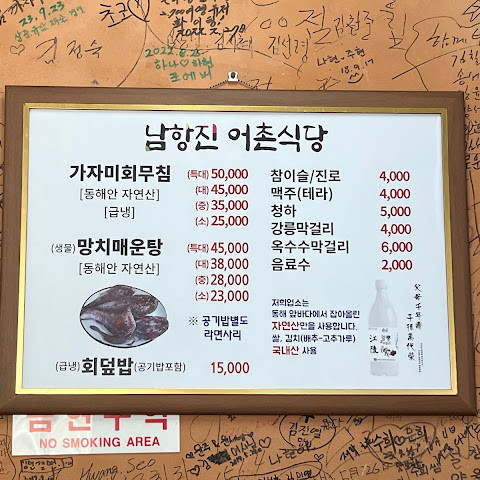 23.9.23
김정숙
초코
2022.8.23
하나♡하현
포에버
김선경
김환준
나현,주현
18.9.17
함께
남항진 어촌식당
가자미회무침 (특대) 50,000
[동해안 자연산] (대) 45,000
[급냉] (중) 35,000
(소) 25,000
(생물) 망치매운탕 (특대) 45,000
[동해안 자연산] (대) 38,000
(중) 28,000
(소) 23,000
※ 공기밥별도
라면사리
(급냉) 회덮밥 (공기밥포함) 15,000
참이슬/진로 4,000
맥주(테라) 4,000
청하 5,000
강릉막걸리 4,000
옥수수막걸리 6,000
음료수 2,000
저희업소는
동해 앞바다에서 잡아올린
자연산만을 사용합니다.
쌀, 김치(배추-고추가루)
국내산 사용
父母千年壽
子孫萬代榮
江陵
NO SMOKING AREA
Hwang, Seo
김진영
5月26